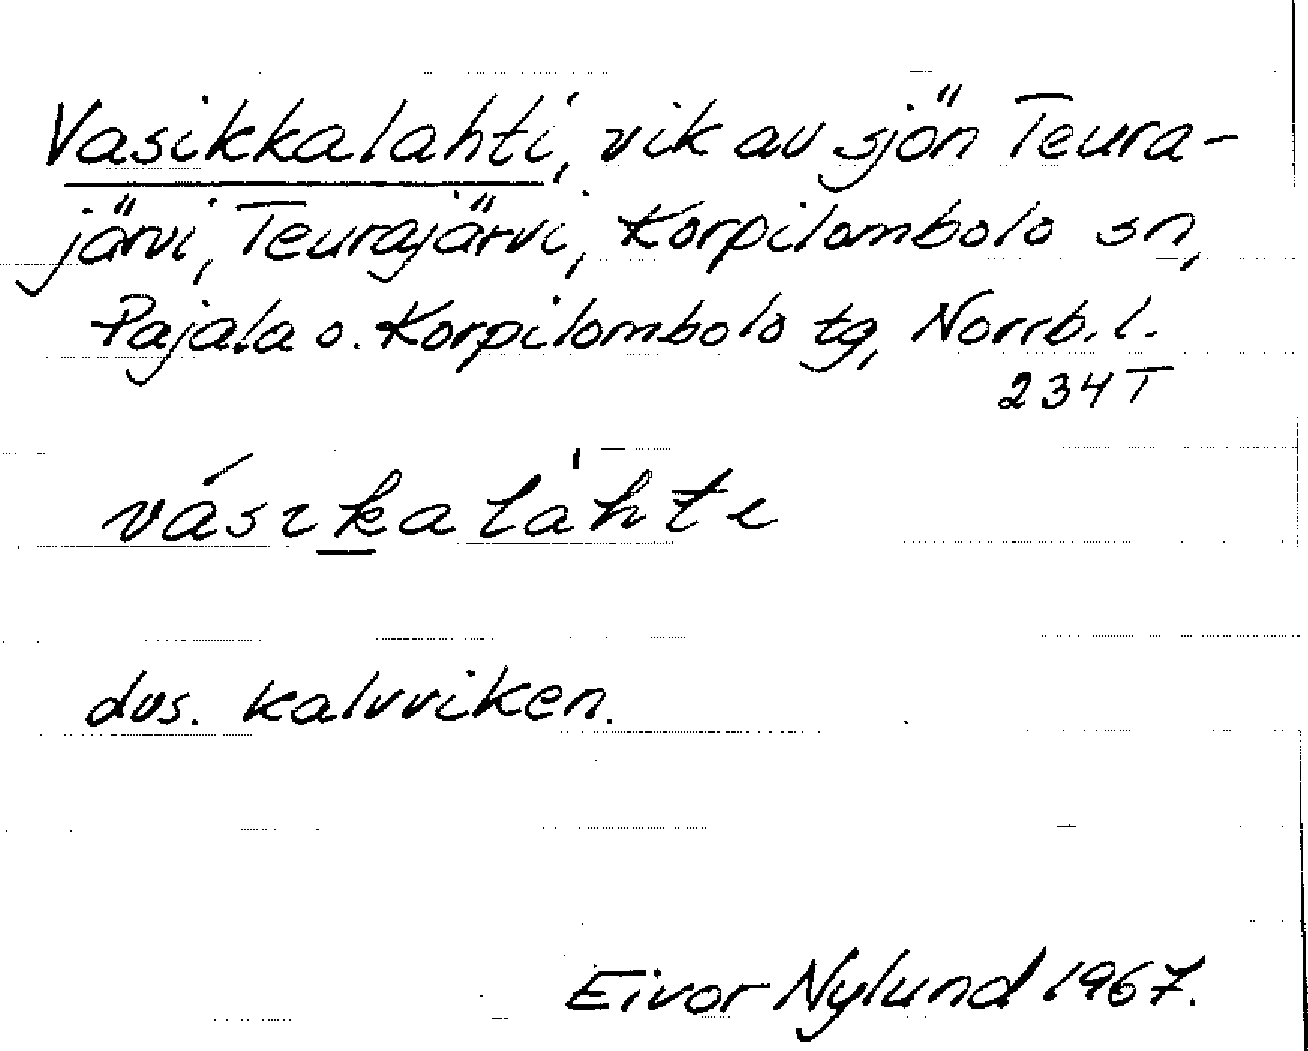 Vasikkalahti, vik av sjön Teura-
järvi, Teurajärvi, Korpilombolo sn,
Pajala o. Korpilombolo tg, Norrb. l.
234T
vásɩk̲alàhtɩ
dvs. kalvviken.
Eivor Nylund 1967.